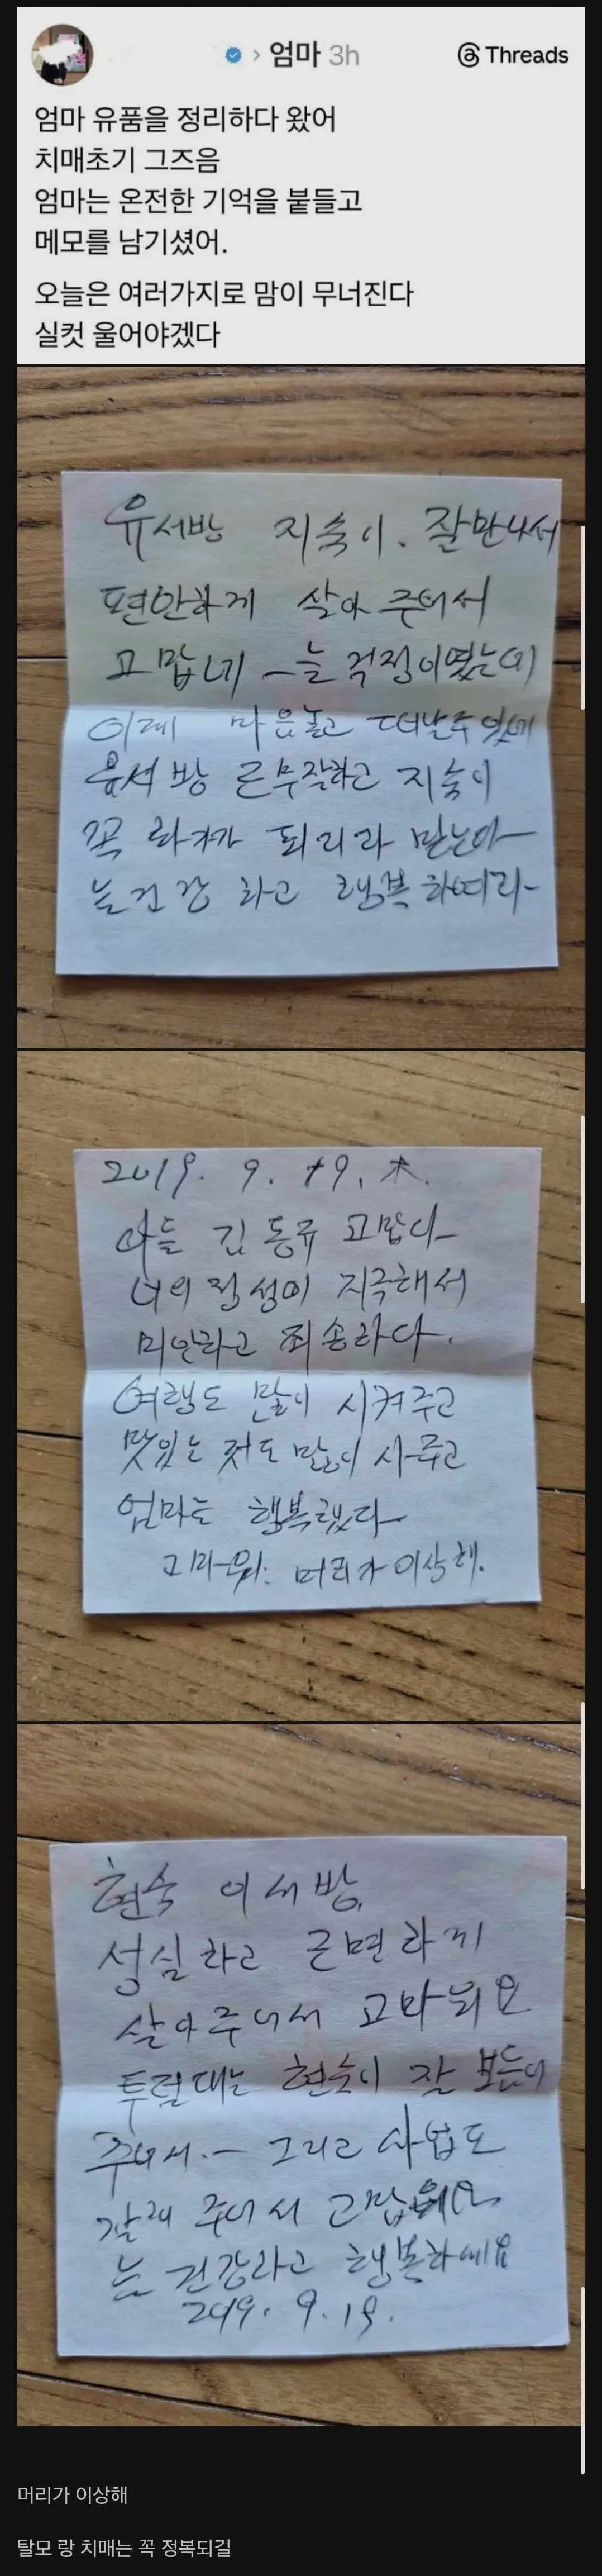 엄마 3h
Threads
엄마 유품을 정리하다 왔어
치매초기 그즈음
엄마는 온전한 기억을 붙들고
메모를 남기셨어.
오늘은 여러가지로 맘이 무너진다
실컷 울어야겠다
유서방 지숙이. 잘만나서
편안하게 살아 주어서
고맙네 늘 걱정이였는데
이제 마음놓고 떠날수있네
유서방 부탁하고 지숙이
꼭 화가가 되리라 믿는다
늘건강 하고 행복하여라
2019. 9. 19. 木.
아들 김동규 고맙다
너의 정성이 지극해서
미안하고 죄송하다.
여행도 많이 시켜주고
맛있는 것도 많이 사주고
엄마는 행복했다
고마워. 머리가 이상해.
현숙 이서방,
성실하고 근면하게
살아주어서 고마워요
투덜대는 현숙이 잘 보듬어
주어서. 그리고 사업도
잘해 주어서
늘 건강하고 행복하세요
2019. 9. 19.
머리가 이상해
탈모 랑 치매는 꼭 정복되길